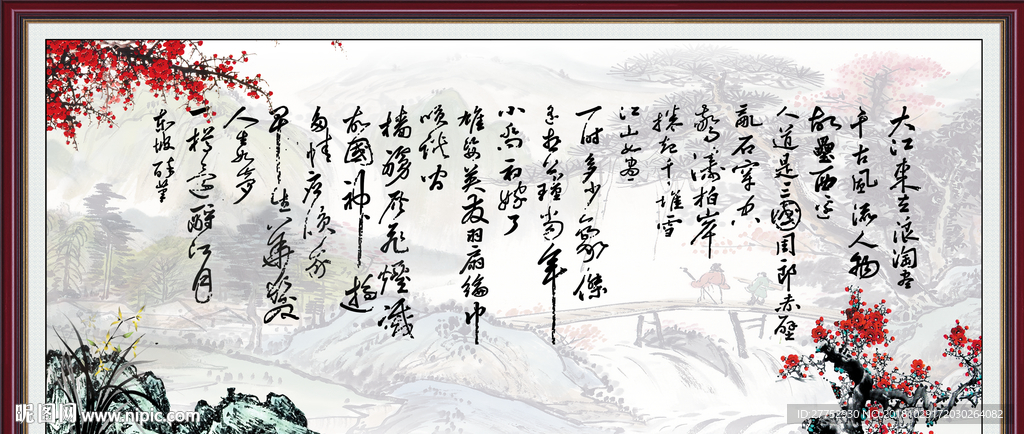 大江東去浪淘盡
千古風流人物
故壘西邊
人道是三國周郎赤壁
亂石穿空
驚濤拍岸
捲起千堆雪
江山如畫
一時多少豪傑
遙想公瑾當年
小喬初嫁了
雄姿英發羽扇綸巾
談笑間
檣櫓灰飛煙滅
故國神遊
多情應笑我
早生華髮
人生如夢
一樽還酹江月
東坡醉筆
昵图网 www.nipic.com
ID:27752930 NO:20181029172030264082